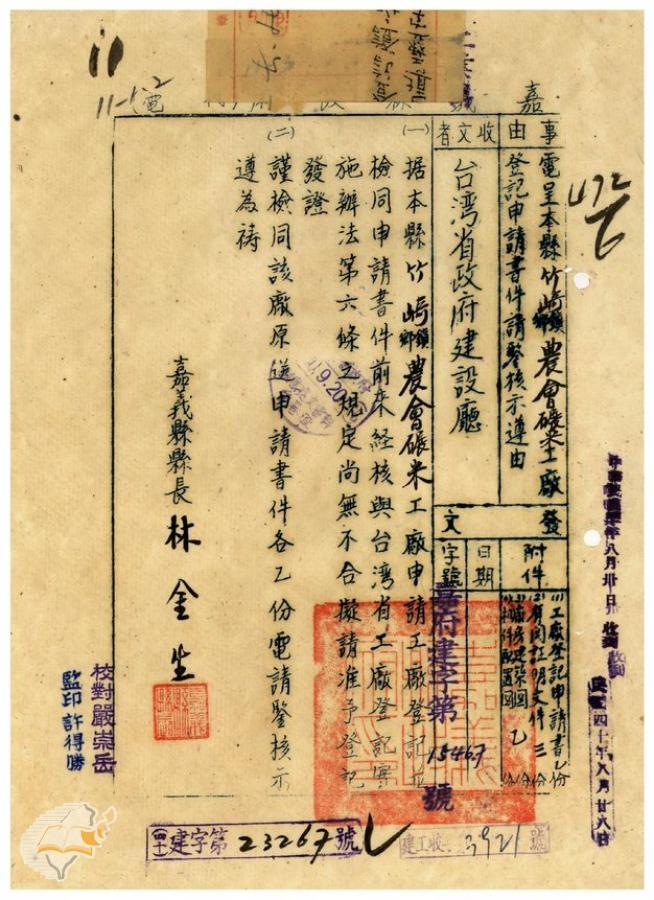 嘉
事由
電呈本縣竹崎鄉鎮農會碾米工廠
登記申請書件請鑒核示遵由
收文者
台湾省政府建設廳
發文
附件
(1)工廠登記申請書乙份
(2)有関証明文件三份
乙份
日期
字號
嘉府建字第15467號
(一)据本縣竹崎鄉鎮農會碾米工廠申請工廠登記並
檢同申請書件前來経核與台湾省工廠登記实
施辦法第六條之規定尚無不合擬請准予登記
發證
(二)謹檢同該廠原送申請書件各乙份電請鑒核示
遵為禱
嘉義縣縣長 林金生
校對嚴崇岳
監印許得勝
四十建字第23267號
建工收 3921 號
八月卅日
四十年八月廿八日
9.20
11